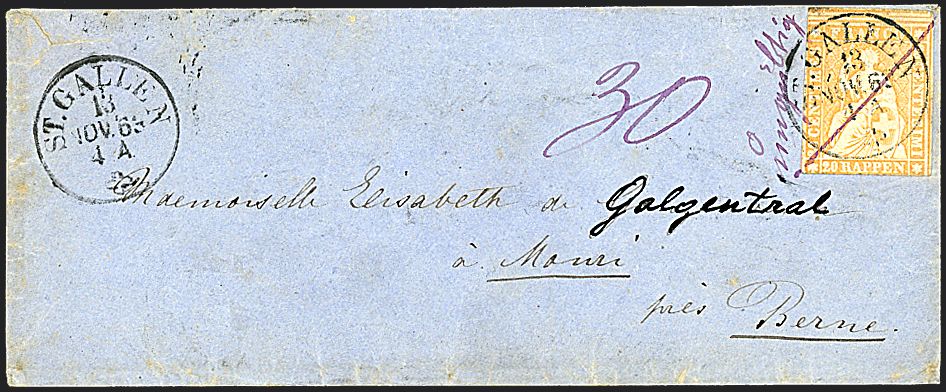 ST. GALLEN
13
NOV. 63
4 A
30
ungültig
ST. GALLEN
13
NOV. 6
4 A
20 RAPPEN
Mademoiselle Elisabeth de Galgentral
à Mouri
près Berne.